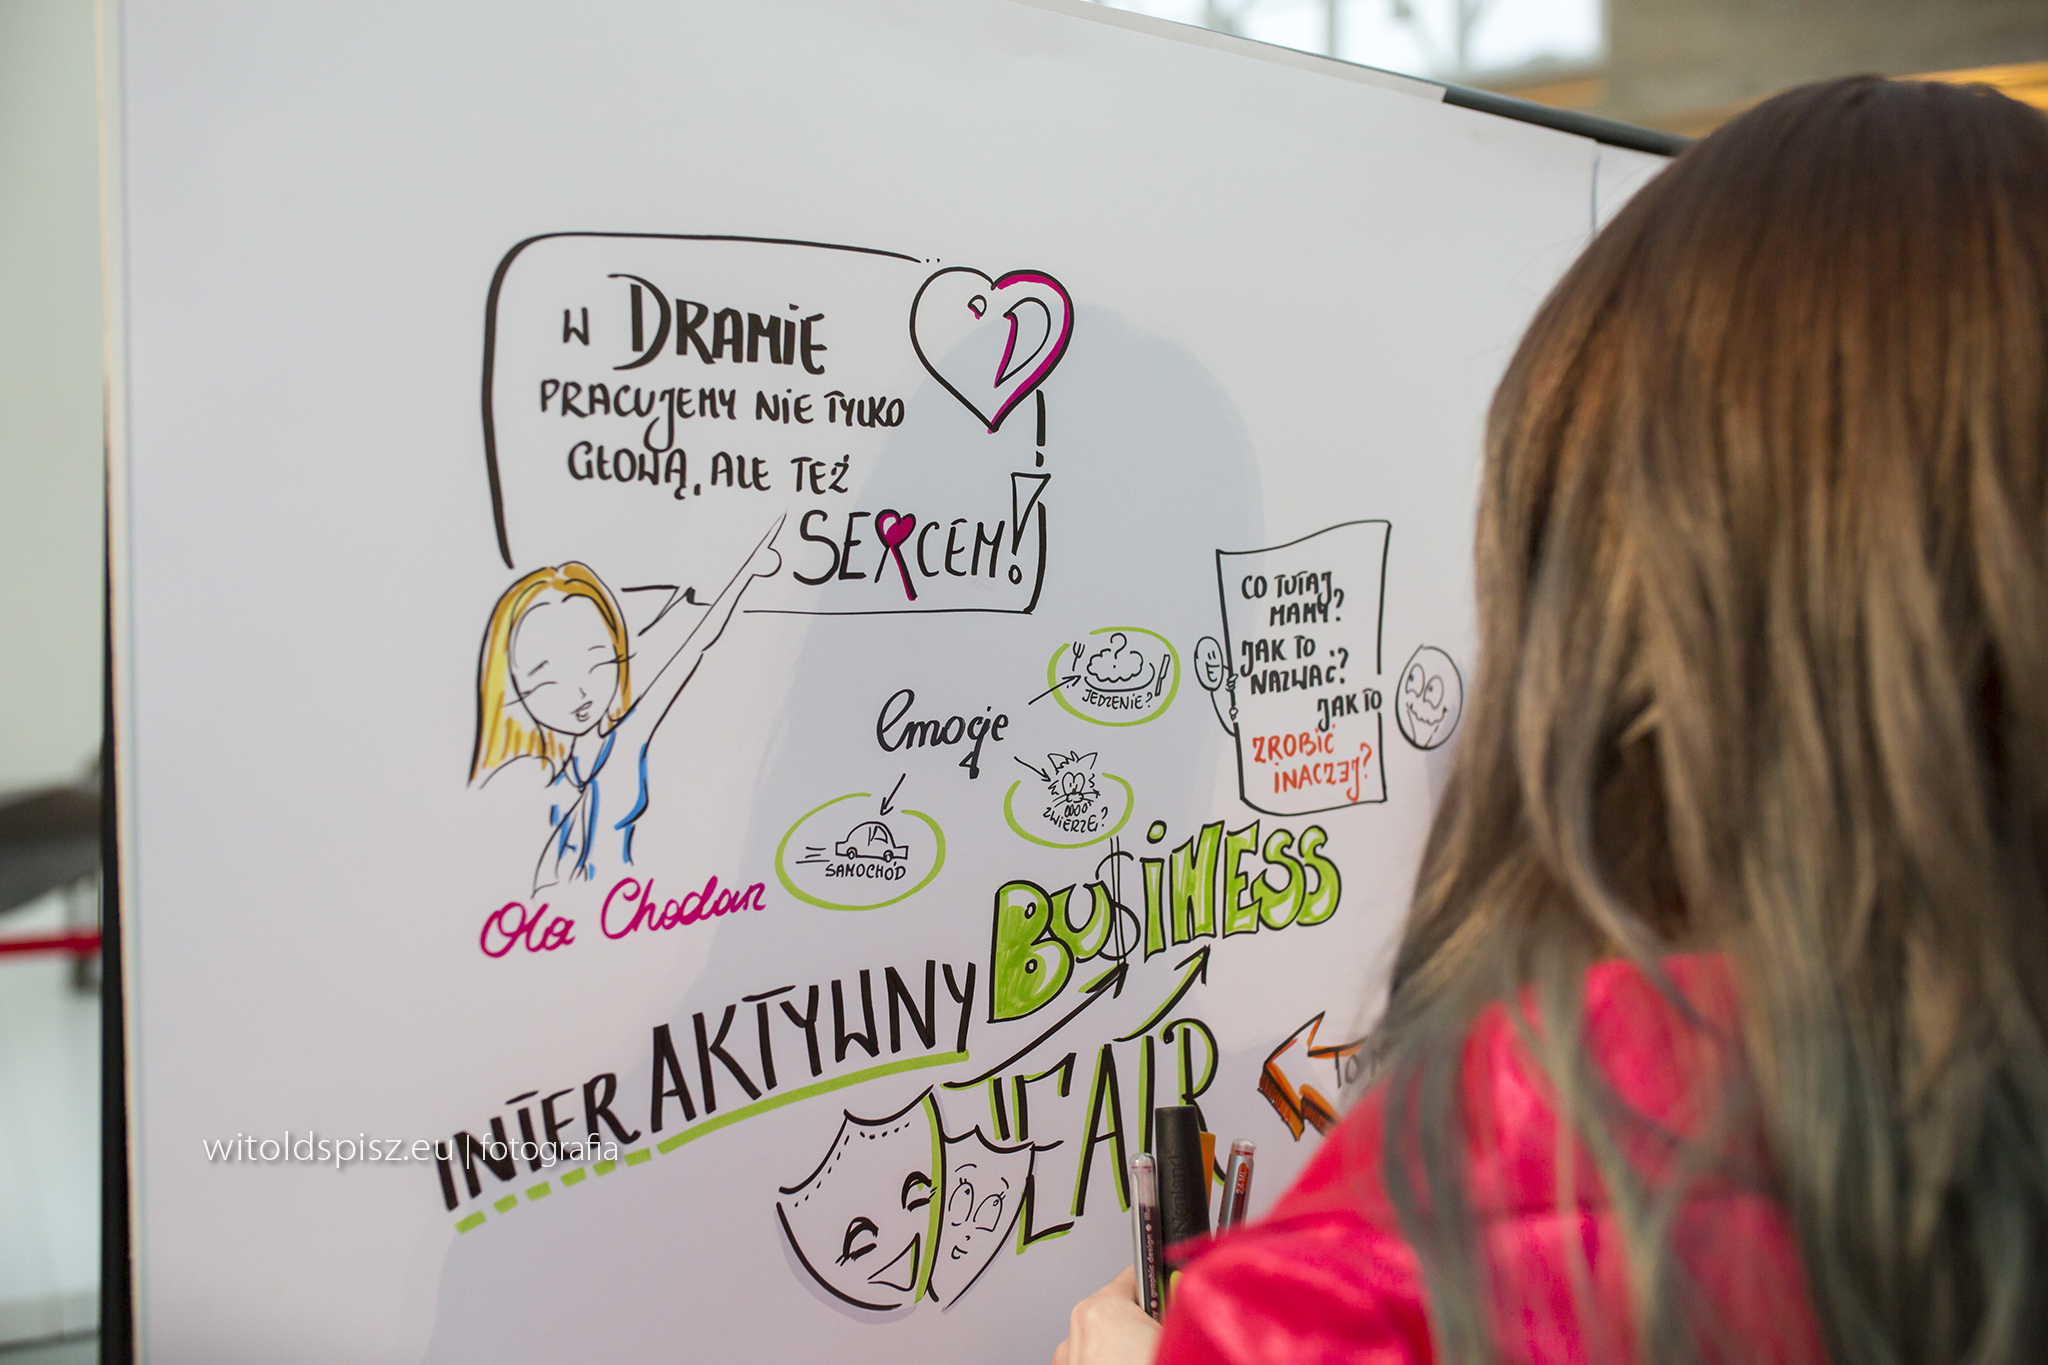 W DRAMIE
PRACUJEMY NIE TYLKO
GŁOWĄ, ALE TEŻ
SERCEM!
CO TUTAJ
MAMY?
JAK TO
NAZWAĆ?
JAK TO
ZROBIĆ
INACZEJ?
JEDZENIE?
emocje
ZWIERZĘ?
SAMOCHÓD
Ola Chodan
BU$INESS
INTERAKTYWNY
TEATR
witoldspisz.eu | fotografia
Neuland
graphic design